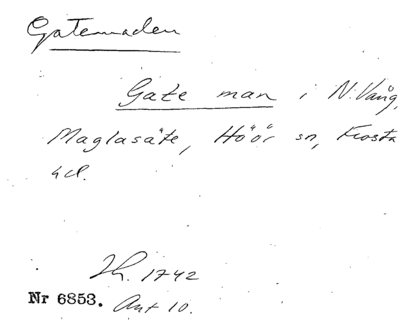 Gatemaden
Gate man i N. Vång,
Maglasäte, Höör sn, Frosta
hd.
Lh. 1742
Nr 6853. Akt 10.